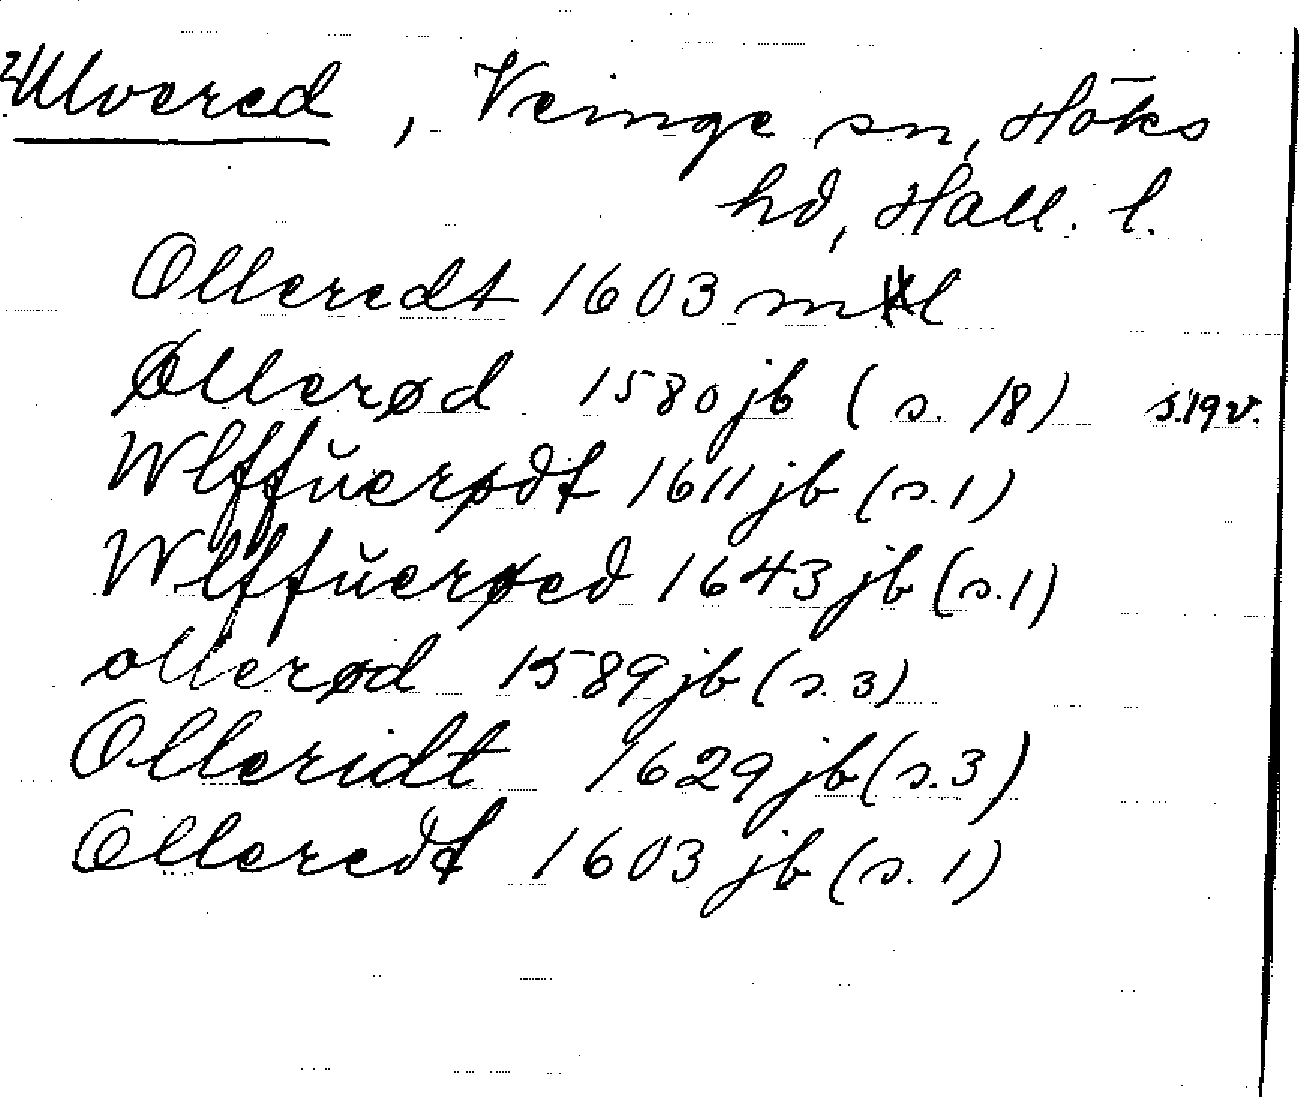 Ulvered, Veinge sn, Höks
hd, Hall. l.
Olleredt 1603 ml
Øllerød 1580 jb (s. 18) s. 19 v.
Wlffŭerødt 1611 jb (s. 1)
Wlffŭerøed 1643 jb (s. 1)
ollerød 1589 jb (s. 3)
Olleridt 1629 jb (s. 3)
Olleredt 1603 jb (s. 1)